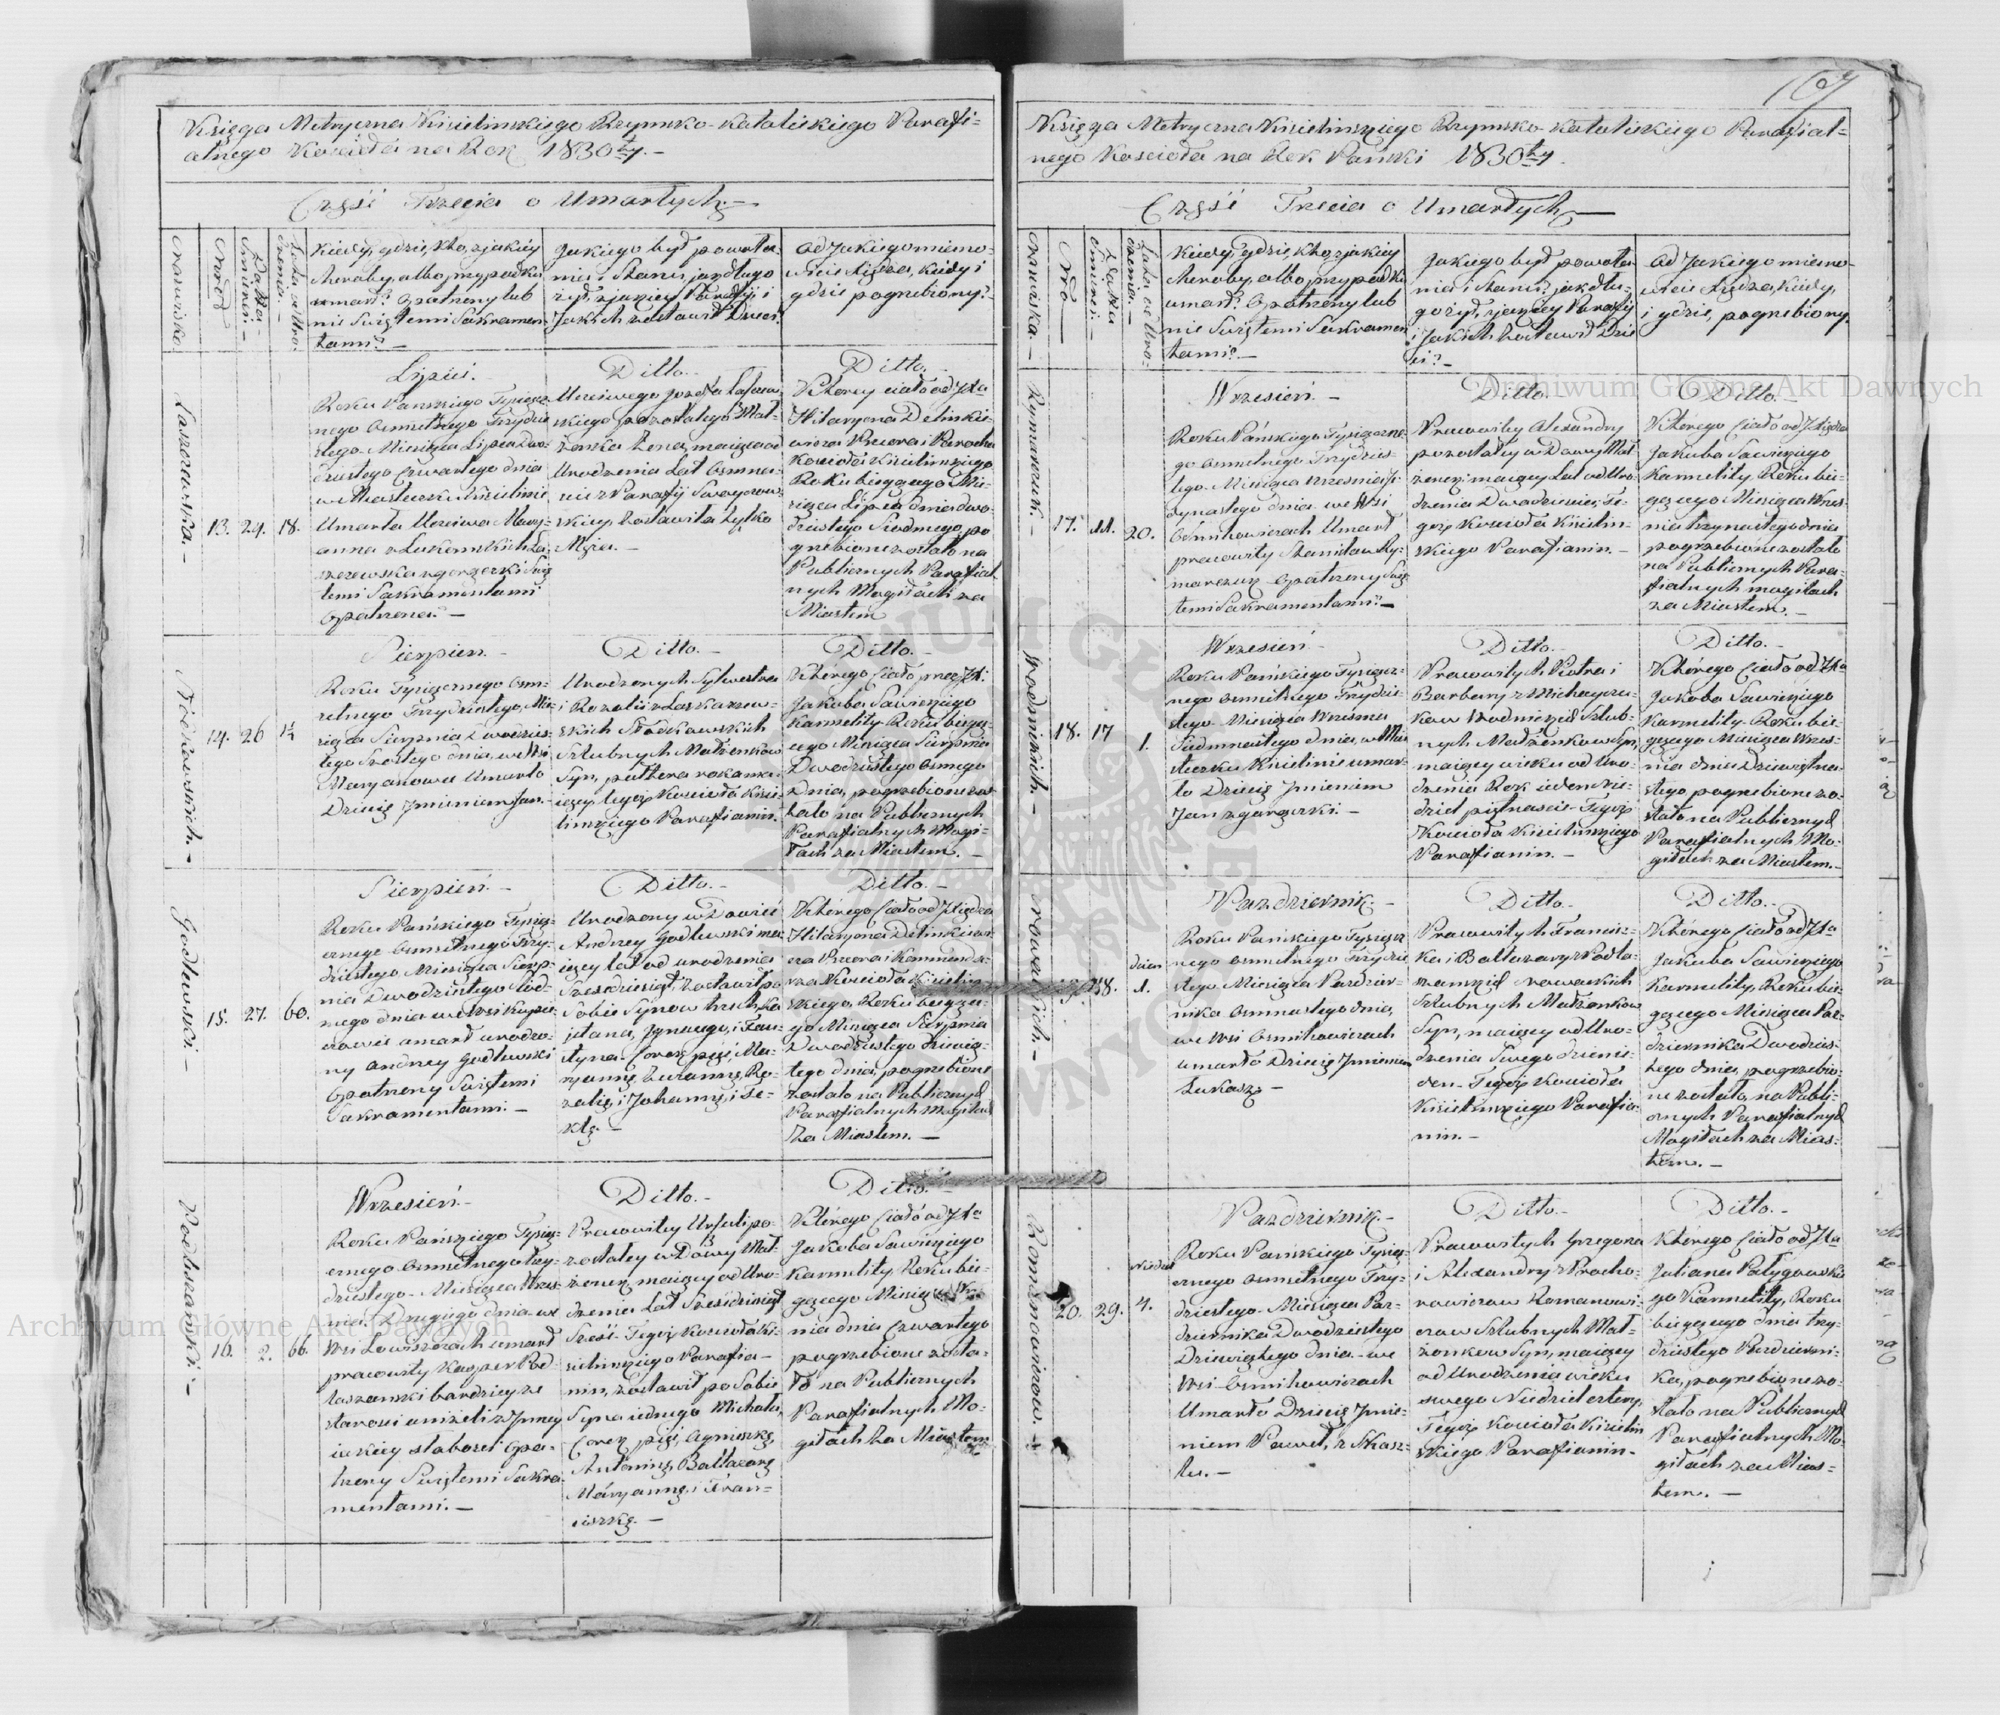 167
Księga Metryczna Kisielinskiego Rzymsko-Katolickiego Parafi-
alnego Kościoła na Rok 1830ty.-
Część Trzecia o Umarłych.-
Nazwisko.
Nro
Data śmierci.-
Lata od Uro-
dzenia.-
Kiedy, gdzie, kto, z jakiey
choroby, albo, przypadku
umarł? Opatrzony lub
nie Swiętemi Sakramen-
tami?-
Jakiego był powoła-
nia i Stanu, jak długo
żył, z jakiey Parafii i
Jakich zostawił Dzieci.
Od Jakiego miano-
wicie Xiędza, kiedy i
gdzie pogrzebiony?-
Łaszewska.-
13. 24. 18.
Lipiec.-
Roku Pańskiego Tysiącz-
nego Osmsetnego Trzydzie-
stego Miesiąca Lipca Dwu-
dziestego Czwartego dnia
w Miasteczku Kisielinie
Umarła Uczciwa Mary-
anna z Łukomskich Ła-
szewska z gorączki Swię-
temi Sakramentami
Opatrzona.-
Ditto.-
Uczciwego Józefa Łaszew-
skiego pozostałego Mał-
żonka Żona, maiąca od
Urodzenia Lat Osmna-
ście z Parafij
zostawiła tylko
Męża.-
Ditto.
Którey ciało od JXa
Hilaryona Delinkie-
wicza Przeora i Parocha
Kościoła Kisielinskiego
Roku bieżącego Mie-
siąca Lipca dnia dwu-
dziestego Siodmego, po
grzebione zostało na
Publicznych Parafial
nych Mogiłach za
Miastem
Niedkowskich.-
14. 26 1/2
Sierpien.-
Roku Tysiącznego Osm-
setnego Trzydziestego, Mie-
siąca Sierpnia Dwudzies-
tego Szostego dnia, we Wsi
Maryanowce Umarło
Dziecię Jmieniem Jan.-
Ditto.-
Urodzonych Sylwestra
i Rozalii z Laskarzew-
skich
Szlubnych Małżonkow
Syn, półtora roku ma-
iący, tegoż Kościoła Kisie-
linskiego Parafianin.
Ditto.-
Którego Ciało przez JX.
Jakuba Sawickiego
Karmelitę Roku bieżą-
cego Miesiąca Sierpnia
Dwudziestego Osmego
Dnia, pogrzebione zos-
tało na Publicznych
Parafialnych Mogi-
łach za Miastem.-
Godlewski.-
15. 27. 60.
Sierpień.-
Roku Pańskiego Tysią-
cznego Osmsetnego Trzy-
dziestego Miesiąca Sierp-
nia Dwudziestego Siod-
mego dnia we Wsi
umarł urodzo-
ny Andrzey Godlewski
Opatrzony Swiętemi
Sakramentami.-
Ditto.-
Urodzony w Dowiec
Andrzey Godlewski ma-
iący lat od urodzenia
Szesdziesiąt, zostawił po
Sobie Synow trzech, Ka-
jetana, Jgnacego, i Fau-
styna. Corek pięć, Ma-
ryannę, Zuzannę, Ro-
zalię i Johannę, i Te-
klę.-
Ditto.-
Którego Ciało od JXiędza
Hilaryona Delinkiewi-
cza Przeora i Kommenda-
rza Kościoła Kisielin-
skiego, Roku bieżące-
go Miesiąca Sierpnia
Dwudziestego Dziewią-
tego dnia, pogrzebione
zostało na Publicznych
Parafialnych Mogiłach
Za Miastem.-
Podlaszanski.-
16. 2. 66.
Wrzesień.-
Roku Pańskiego Tysią-
cznego Osmsetnego Trzy-
dziestego. Miesiąca Wrześ-
nia. Drugiego dnia we
Wsi Łowiszczach umarł
pracowity Kasper Pod-
laszanski bardziey ze
starosci aniżeli z Jnney
iakiey słabosci Opa-
trzony Swiętemi Sakra-
mentami.-
Ditto.-
Pracowitey Urszuli po-
zostałey w Dowy Mał-
żonek, maiący od Uro-
dzenia Lat Szesdziesiąt
Szesc. Tegoż Kościoła Ki-
sielinskiego Parafia-
nin, zostawił po Sobie
Syna iednego Michała,
Corek pięć, Agnieszkę,
Antoninę, Baltazarę
Maryannę, i Fran-
ciszkę.-
Ditto.-
Którego Ciało od JXa
Jakuba Sawickiego
Karmelity Roku bie-
żącego Miesiąca Wrześ-
nia dnia Czwartego
pogrzebione zosta-
ło na Publicznych
Parafialnych Mo-
giłach Za Miastem
Księga Metryczna Kisielinskiego Rzymsko-Katolickiego Parafial-
nego Kościoła na Rok Pański 1830ty.
Część Trzecia o Umarłych.-
Nazwiska.-
Nro
Data śmierci.-
Lata od Uro-
dzenia.-
Kiedy, gdzie, kto, z jakiey
choroby, albo, przypadku
umarł? Opatrzony lub
nie Swiętemi Sakramen
tami?-
Jakiego był powoła-
nia i Stanu? jak dłu-
go żył, z jakiey Parafij
i Jakich zostawił Dzie
ci?-
Od Jakiego miano-
wicie Xiędza, kiedy,
i gdzie, pogrzebiony.
Rymarczuk.-
17. 11. 20.
Wrzesień.-
Roku Pańskiego Tysiączne-
go Osmsetnego Trzydzies-
tego. Miesiąca Wrzesnia Je-
dynastego dnia we Wsi
Ośmihowiczach Umarł
pracowity Stanisław Ry-
marczuk Opatrzony Swię-
temi Sakramentami.-
Ditto.-
Pracowitey Alexandry
pozostałey w Dowy Mał
żonek maiący Lat od Uro-
dzenia Dwadziescia, Te-
goż Kościoła Kisielin-
skiego Parafianin.-
Ditto.-
Którego Ciało od JXiędza
Jakuba Sawickiego
Karmelity Roku bie-
żącego Miesiąca Wrześ-
nia trzynastego dnia
pogrzebione zostało
na Publicznych Para-
fialnych mogiłach
za Miastem.-
Woźnickich.-
18. 17 1.
Wrzesień.-
Roku Pańskiego Tysiącz-
nego Osmsetnego Trzydzie-
stego. Miesiąca Wrzesnia
Siedmnastego dnia, w Mia-
steczku Kisielinie umar-
ło Dziecię Jmieniem
Jan z gorączki.-
Ditto.-
Pracowitych Piotra i
Barbary z
Szlub-
nych Małżonkow Syn,
maiący wieku od Uro-
dzenia Rok ieden Nie-
dziel piętnascie. Tegoż
Kościoła Kisielinskiego
Parafianin.-
Ditto.-
Którego Ciało od JXa
Jakuba Sawickiego
Karmelity Roku bie-
żącego Miesiąca Wrześ-
nia dnia Dziewiętna-
stego pogrzebione zo-
stało na Publicznych
Parafialnych Mo-
giłach za Miastem.-
18. dzien 1.
Pazdziernik.-
Roku Pańskiego Tysiącz
nego Osmsetnego Trzydzie
stego Miesiąca Pazdzier-
nika Osmnastego dnia,
we Wsi Ośmihowiczach
umarło Dziecię Jmieniem
Łukasz.-
Ditto.-
Pracowitych Francis-
ka i Baltazary z Podla-
szanskich
Szlubnych Małżonkow
Syn, maiący od Uro-
dzenia Swego dzien ie-
den. Tegoż Kościoła
Kisielinskiego Parafia-
nin.-
Ditto.-
Którego Ciało od JXa
Jakuba Sawickiego
Karmelity, Roku bie-
żącego Miesiąca Paz-
dziernika Dwudzies-
tego dnia, pogrzebio-
ne zostało, na Publi-
cznych Parafialnych
Mogiłach za Mias-
tem.-
Romanowiczow.-
20. 29. niedziel 4.
Pazdziernik.-
Roku Pańskiego Tysią-
cznego Osmsetnego Trzy-
dziestego. Miesiąca Paz-
dziernika Dwudziestego
Dziewiątego dnia. we
Wsi Ośmihowiczach
Umarło Dziecię Jmie-
niem Paweł, z
Ditto.-
Pracowitych Grzegorza
i Alexandry z Procho-
rowiczow Romanowi-
czow Szlubnych Mał-
żonkow Syn, maiący
od Urodzenia wieku
swego Niedziel cztery,
Tegoż Kościoła Kisielin
skiego Parafianin.
Ditto.-
Którego Ciało od JXa
Juliana Pałygowskie
go Karmelity, Roku
bieżącego dnia trzy-
dziestego Pazdzierni-
ka, pogrzebione zo-
stało na Publicznych
Parafialnych Mo-
giłach za Mias-
tem.-
Archiwum Główne Akt Dawnych
Archiwum Główne Akt Dawnych